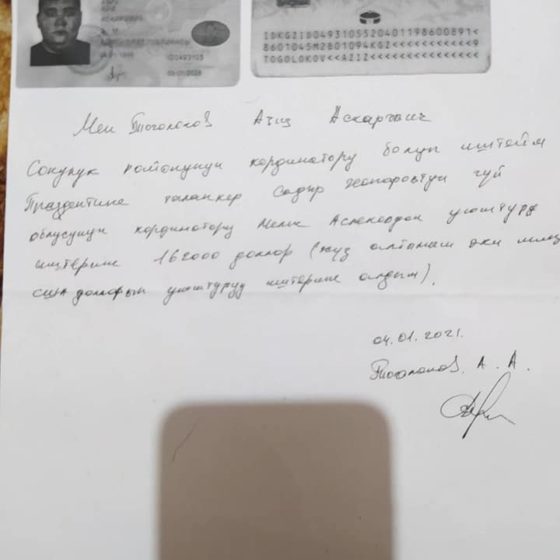 IDKGZID0493105520401198600891<
8601045M2801094KGZ<<<<<<<<<<<9
TOGOLOKOV<<AZIZ<<<<<<<<<<<<<<<
Мен Тоголоков Азиз Аскарович
Сокулук районунун кординатору болуп иштейм
Празидентике таланкер Садыр Жапаровтун Чуй
облусунун кординатору Мелис Аспековдон уюштуруу
иштерине 162000 доллар (жуз алтымыш эки миң
сша долларын уюштуруу иштерине алдым).
04.01.2021.
Тоголоков. А. А.